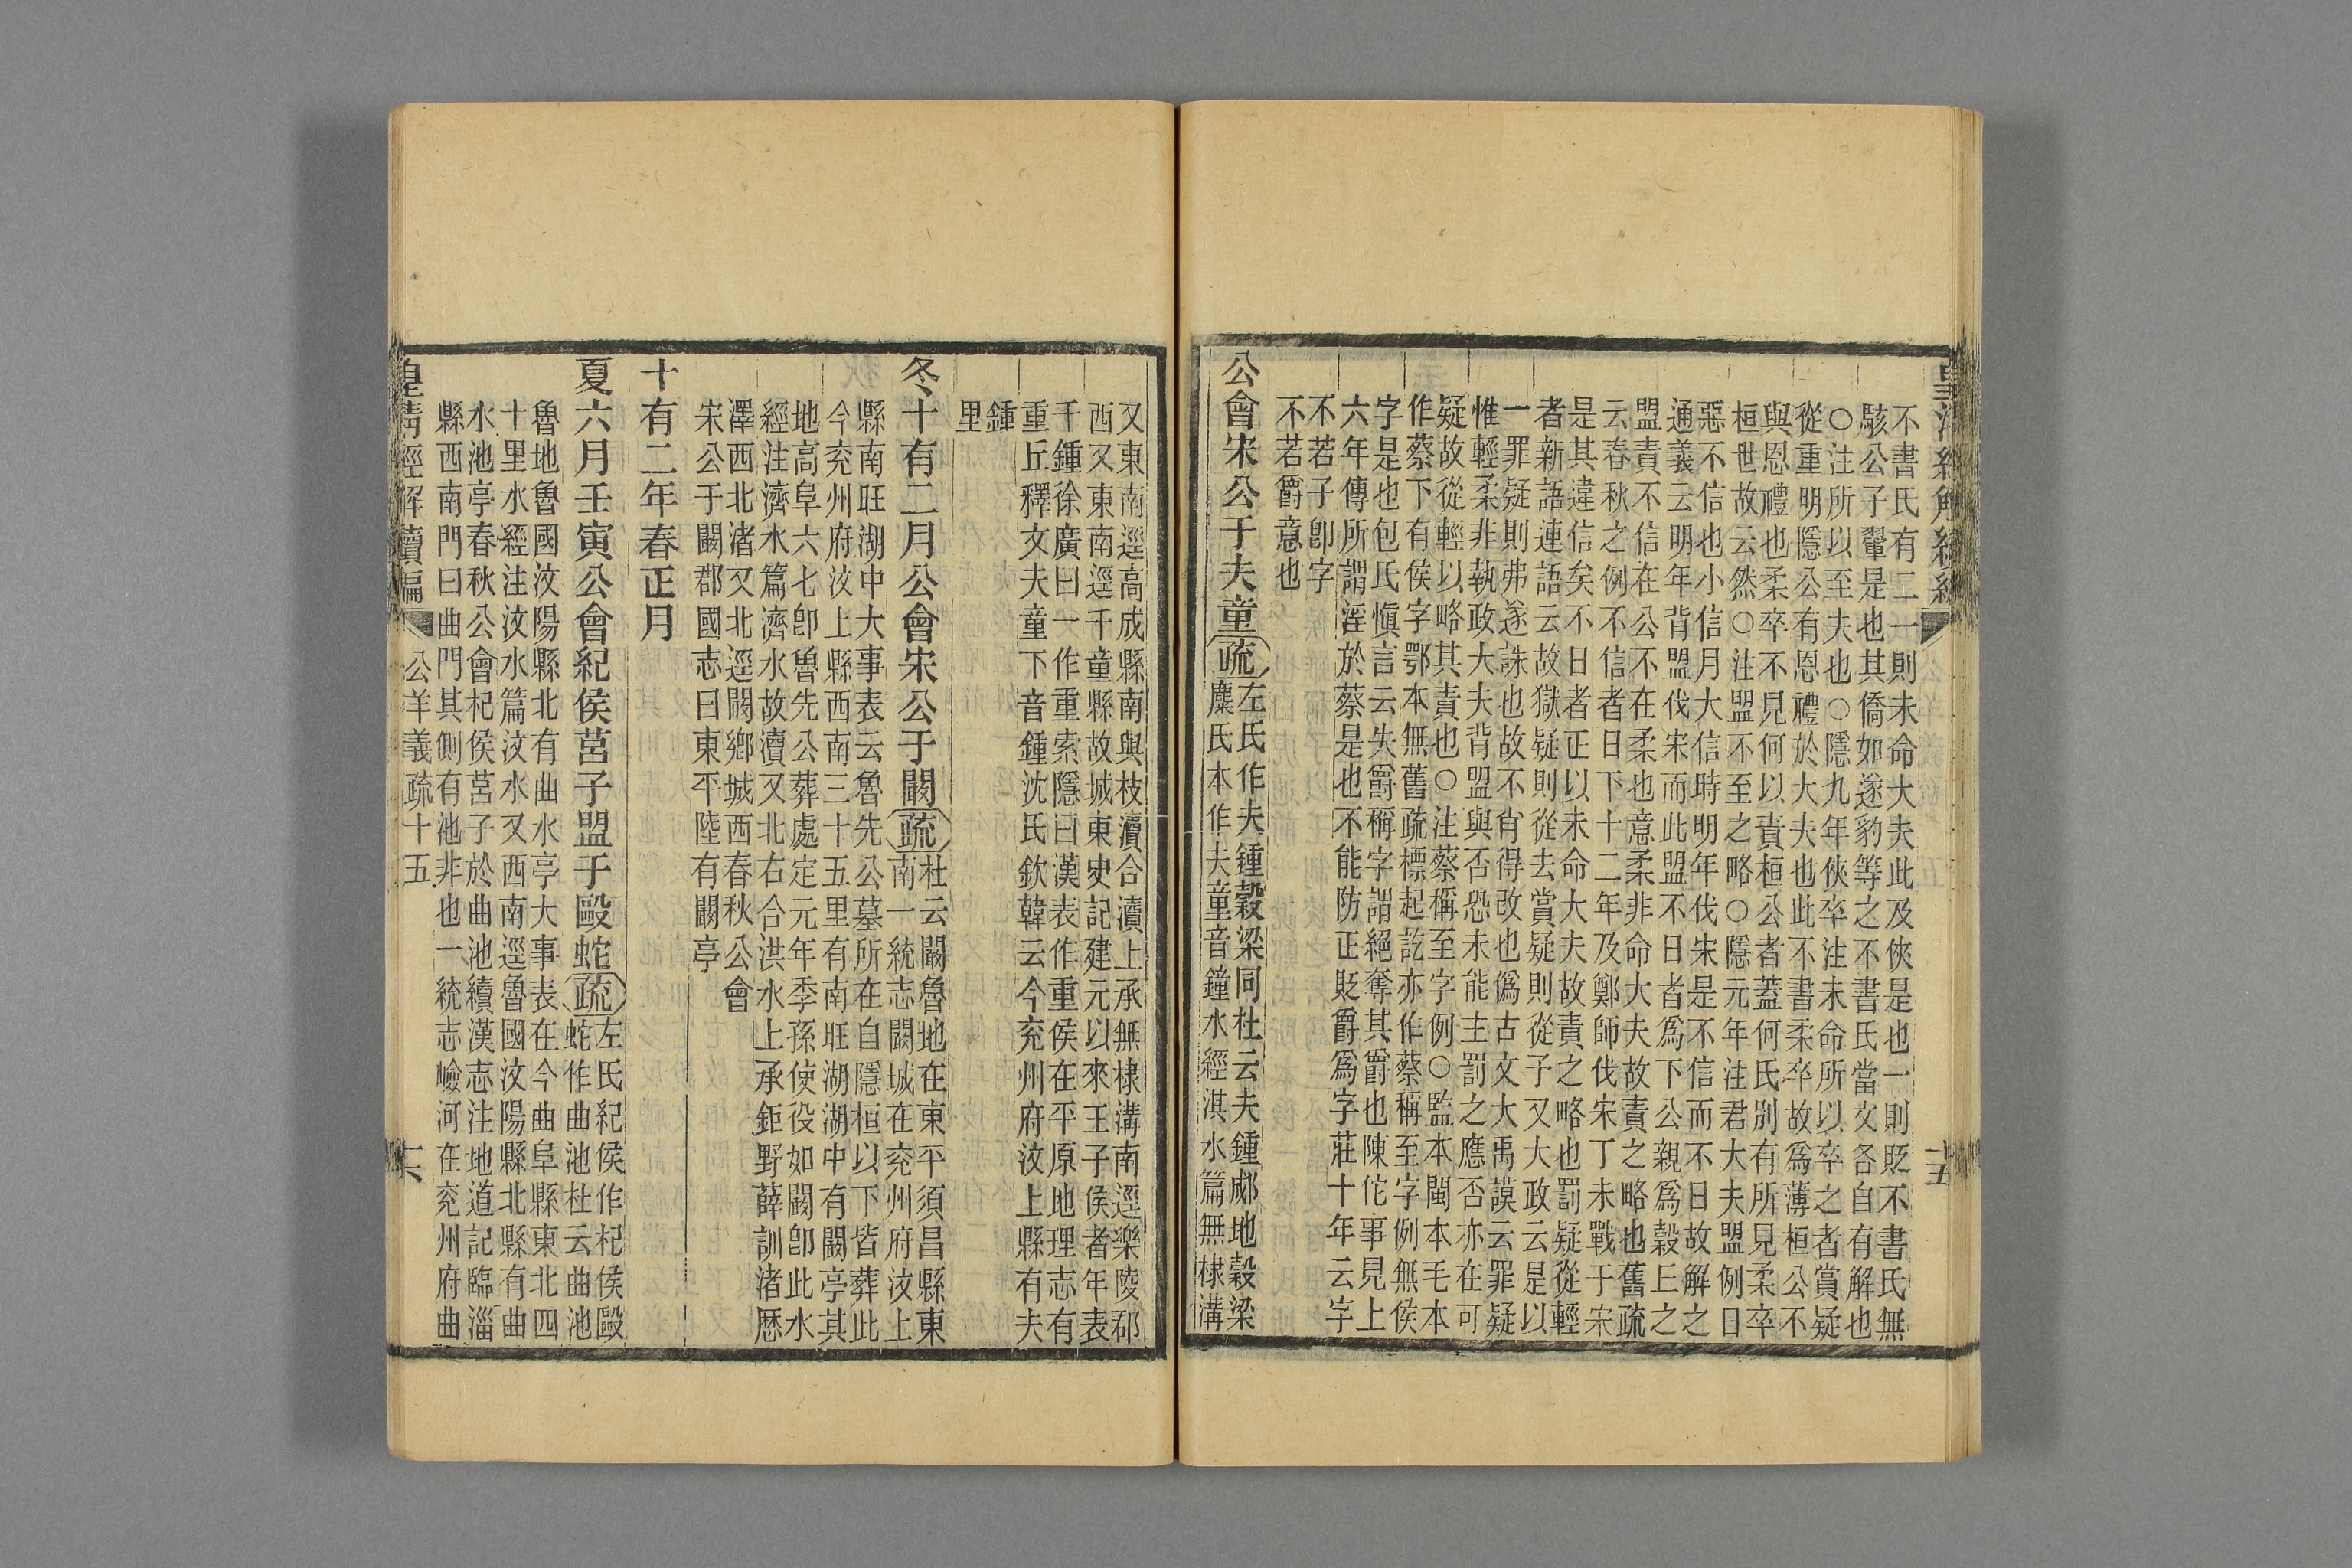 不書氏有二一則未命大夫此及俠是也一則貶不書氏無
駭公子翬是也其僑如遂豹等之不書氏當文各自有解也
○注所以至夫也○隱九年俠卒注未命所以卒之者賞疑
從重明隱公有恩禮於大夫也此不書柔卒故爲薄桓公不
與恩禮也柔卒不見何以責桓公者蓋何氏別有所見柔卒
桓世故云然○注盟不至之略○隱元年注君大夫盟例日
惡不信也小信月大信時明年伐宋是不信而不日故解之
通義云明年背盟伐宋而此盟不日者爲下公親爲穀丘之
盟責不信在公不在柔也意柔非命大夫故責之略也舊疏
云春秋之例不信者日下十二年及鄭師伐宋丁未戰于宋
是其違信矣不日者正以未命大夫故責之略也罰疑從輕
者新語連語云故獄疑則從去賞疑則從子又大政云是以
一罪疑則弗遂誅也故不肖得改也僞古文大禹謨云罪疑
惟輕柔非執政大夫背盟與否恐未能主罰之應否亦在可
疑故從輕以略其責也○注蔡稱至字例○監本閩本毛本
作蔡下有侯字鄂本無舊疏標起訖亦作蔡稱至字例無侯
字是也包氏愼言云失爵稱字謂絕奪其爵也陳佗事見上
六年傳所謂淫於蔡是也不能防正貶爵爲字莊十年云字
不若子卽字
不若爵意也
公會宋公于夫童疏左氏作夫鍾穀梁同杜云夫鍾郕地穀梁
麋氏本作夫童音鐘水經淇水篇無棣溝
又東南逕高成縣南與枝瀆合瀆上承無棣溝南逕樂陵郡
西又東南逕千童縣故城東史記建元以來王子侯者年表
千鍾徐廣曰一作重索隱曰漢表作重侯在平原地理志有
重丘釋文夫童下音鍾沈氏欽韓云今兖州府汶上縣有夫
鍾
里
冬十有二月公會宋公于闞疏杜云闞魯地在東平須昌縣東
南一統志闞城在兖州府汶上
縣南旺湖中大事表云魯先公墓所在自隱桓以下皆葬此
今兖州府汶上縣西南三十五里有南旺湖湖中有闞亭其
地高阜六七卽魯先公葬處定元年季孫使役如闞卽此水
經注濟水篇濟水故瀆又北右合洪水上承鉅野薛訓渚歷
澤西北渚又北逕闞鄉城西春秋公會
宋公于闞郡國志曰東平陸有闞亭
十有二年春正月
夏六月壬寅公會紀侯莒子盟于毆蛇疏左氏紀侯作杞侯毆
蛇作曲池杜云曲池
魯地魯國汶陽縣北有曲水亭大事表在今曲阜縣東北四
十里水經注汶水篇汶水又西南逕魯國汶陽縣北縣有曲
水池亭春秋公會杞侯莒子於曲池續漢志注地道記臨淄
縣西南門曰曲門其側有池非也一統志嶮河在兖州府曲
皇清經解續編 公羊義疏十五 十六